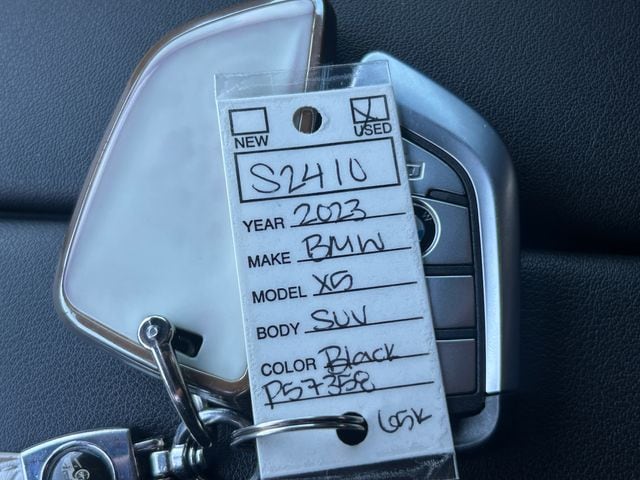 NEW USED
S2410
YEAR 2023
MAKE BMW
MODEL X5
BODY SUV
COLOR Black
P57358
65K